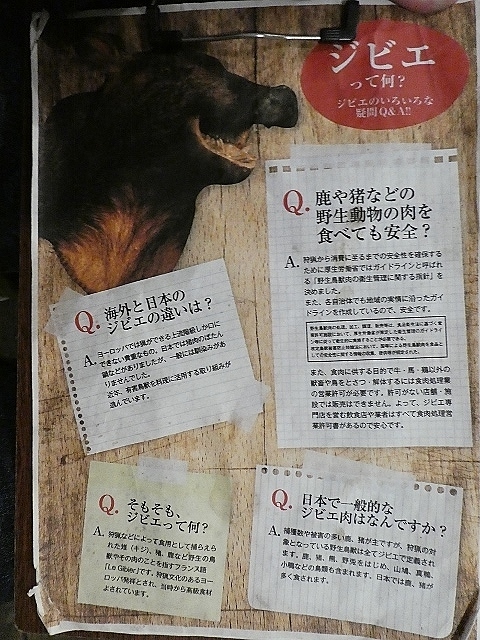 ジビエ
って何?
ジビエのいろいろな
疑問Q&A!!
Q. 鹿や猪などの
野生動物の肉を
食べても安全?
A. 狩猟から消費に至るまでの安全性を確保する
ために厚生労働省ではガイドラインと呼ばれ
る「野生鳥獣肉の衛生管理に関する指針」を
決めました。
また、各自治体でも地域の実情に沿ったガイ
ドラインを作成しているので、安全です。
また、食肉に供する目的で牛・馬・鶏以外の
獣畜や鳥をとさつ・解体するには食肉処理業
の営業許可が必要です。許可がない店舗・施
設では販売はできません。よって、ジビエ専
門店を営む飲食店や業者はすべて食肉処理営
業許可書があるので安心です。
Q. 海外と日本の
ジビエの違いは?
A. ヨーロッパでは猟ができる上流階級しか口に
できない貴重なもの。日本では猪肉のぼたん
鍋などがありましたが、一般には馴染みがあ
りませんでした。
近年、有害鳥獣を料理に活用する取り組みが
進んでいます。
Q. そもそも、
ジビエって何?
A. 狩猟などによって食用として捕らえら
れた雉(キジ)、猪、鹿など野生の鳥
獣やその肉のことを指すフランス語
「Le Gibier」です。狩猟文化のあるヨー
ロッパ発祥とされ、当時から高級食材
よされています。
Q. 日本で一般的な
ジビエ肉はなんですか?
A. 捕獲数や被害の多い鹿、猪が主ですが、狩猟の対
象となっている野生鳥獣は全てジビエで定義されま
す。鹿、猪、熊、野兎をはじめ、山鳩、真鴨、
小鴨などの鳥類も含まれます。日本では鹿、猪が
多く食されます。